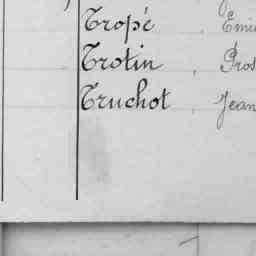 Tropé
Trotin , Pros
Truchot , Jean